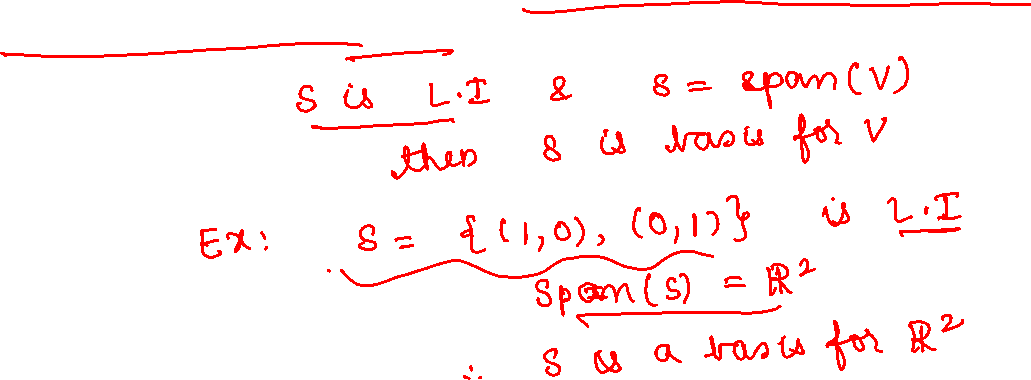 S is L.I & S = span(V)
then S is basis for V
Ex: S = {(1,0), (0,1)} is L.I
Span(S) = ℝ²
∴ S is a basis for ℝ²